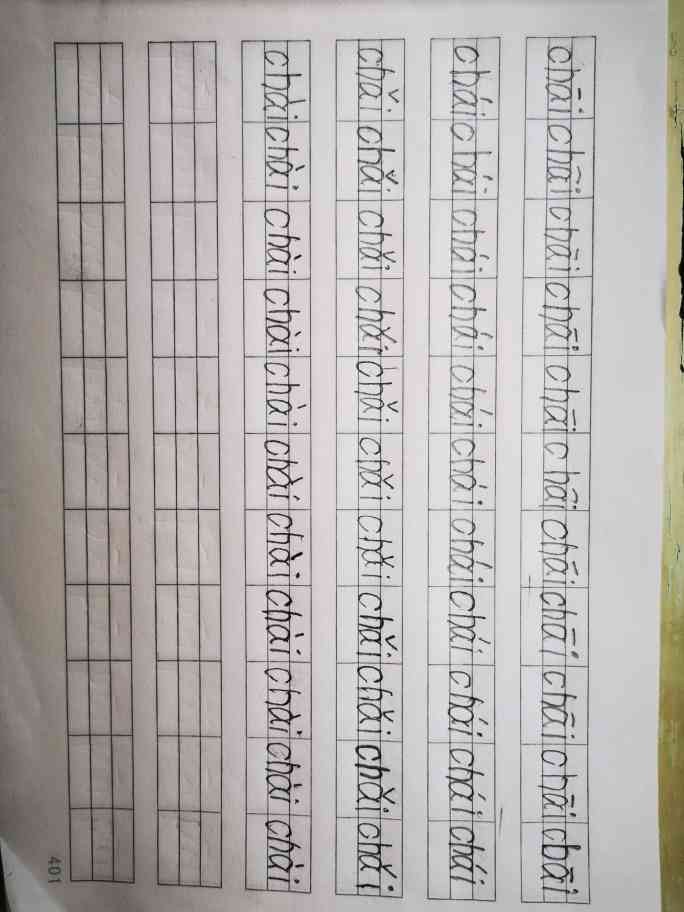 chāi chāi chāi chāi chāi chāi chāi chāi chāi chāi chāi
chái chái chái chái chái chái chái chái chái chái chái
chǎi chǎi chǎi chǎi chǎi chǎi chǎi chǎi chǎi chǎi chǎi
chài chài chài chài chài chài chài chài chài chài chài
401